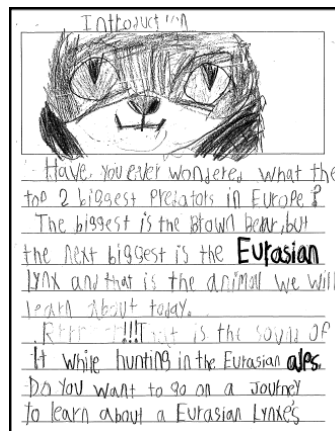 Introduction
Have, you ever wondered what the
top 2 biggest Predators in Europe?
The biggest is the brown bear, but
the next biggest is the Eurasian
Lynx and that is the animal we will
learn about today.
Rrrrr!!! That is the sound of
it while hunting in the Eurasian alps.
Do you want to go on a Journey
to learn about a Eurasian Lynxe's